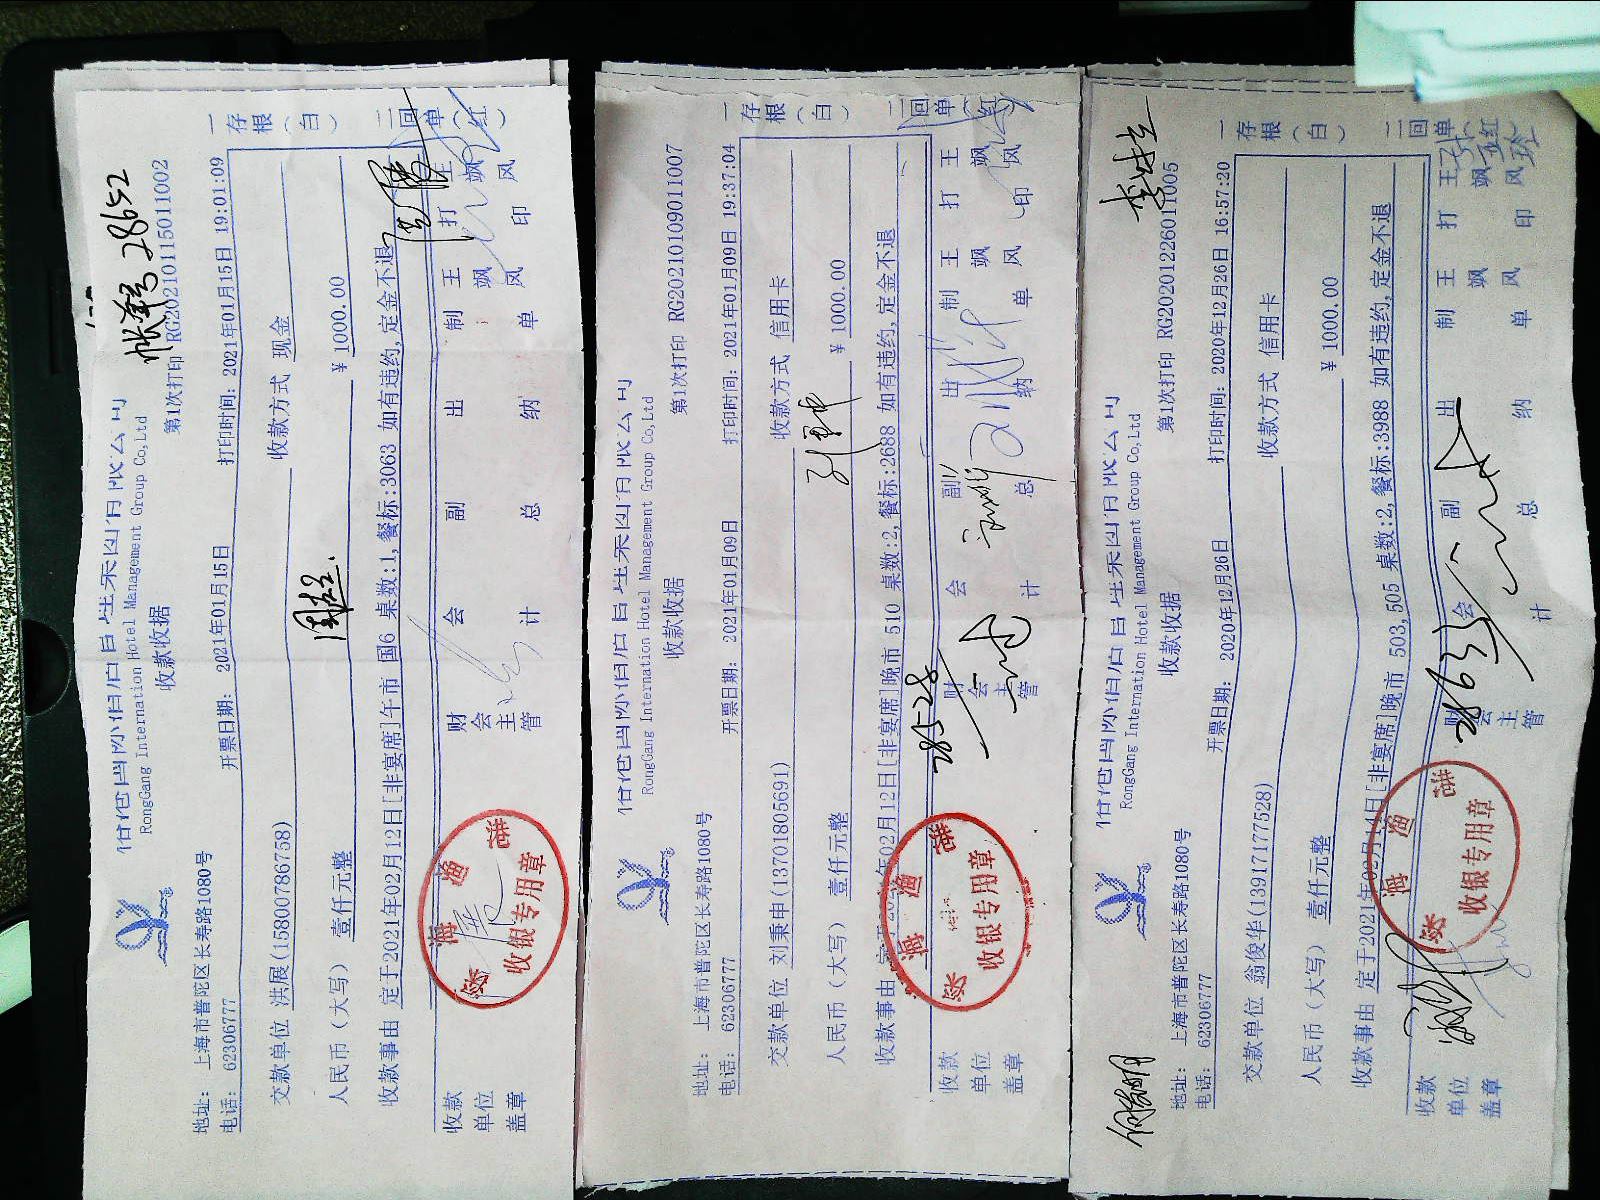 帐单号 28652
RongGang Internation Hotel Management Group Co,Ltd
收款收据
第1次打印 RG20210115011002
地址: 上海市普陀区长寿路1080号
电话: 62306777
开票日期: 2021年01月15日
打印时间: 2021年01月15日 19:01:09
交款单位 洪展(15800786758)
收款方式 现金
人民币(大写) 壹仟元整
¥ 1000.00
收款事由 定于2021年02月12日[非宴席]午市 国6 桌数:1,餐标:3063 如有违约,定金不退
收款单位盖章
财会主管
会计
副总
出纳
制单
王飒风
打印
王飒风
一存根(白)
二回单(红)
收银专用章
RongGang Internation Hotel Management Group Co,Ltd
收款收据
第1次打印 RG20210109011007
地址: 上海市普陀区长寿路1080号
电话: 62306777
开票日期: 2021年01月09日
打印时间: 2021年01月09日 19:37:04
交款单位 刘秉申(13701805691)
收款方式 信用卡
人民币(大写) 壹仟元整
¥ 1000.00
收款事由 定于2021年02月12日[非宴席]晚市 510 桌数:2,餐标:2688 如有违约,定金不退
28528
收款单位盖章
财会主管
会计
副总
出纳
制单
王飒风
打印
王飒风
一存根(白)
二回单(红)
收银专用章
RongGang Internation Hotel Management Group Co,Ltd
收款收据
第1次打印 RG20201226011005
地址: 上海市普陀区长寿路1080号
电话: 62306777
开票日期: 2020年12月26日
打印时间: 2020年12月26日 16:57:20
交款单位 翁俊华(13917177528)
收款方式 信用卡
人民币(大写) 壹仟元整
¥ 1000.00
收款事由 定于2021年02月14日[非宴席]晚市 503,505 桌数:2,餐标:3988 如有违约,定金不退
收款单位盖章
财会主管
会计
副总
出纳
制单
王飒风
打印
王飒风
一存根(白)
二回单(红)
收银专用章